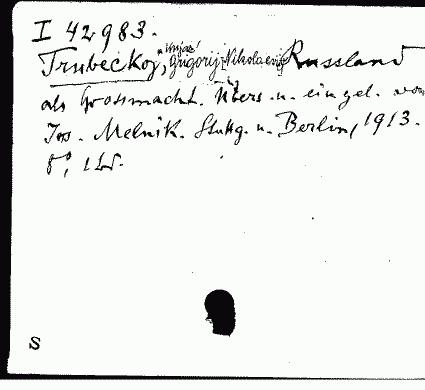 I 42983.
Trubeckoj, Knjaz' Grigorij Nikolaevič Russland
als Grossmacht. Übers. u. eingel. von
Jos. Melnik. Stuttg. u. Berlin, 1913.
8°,
S